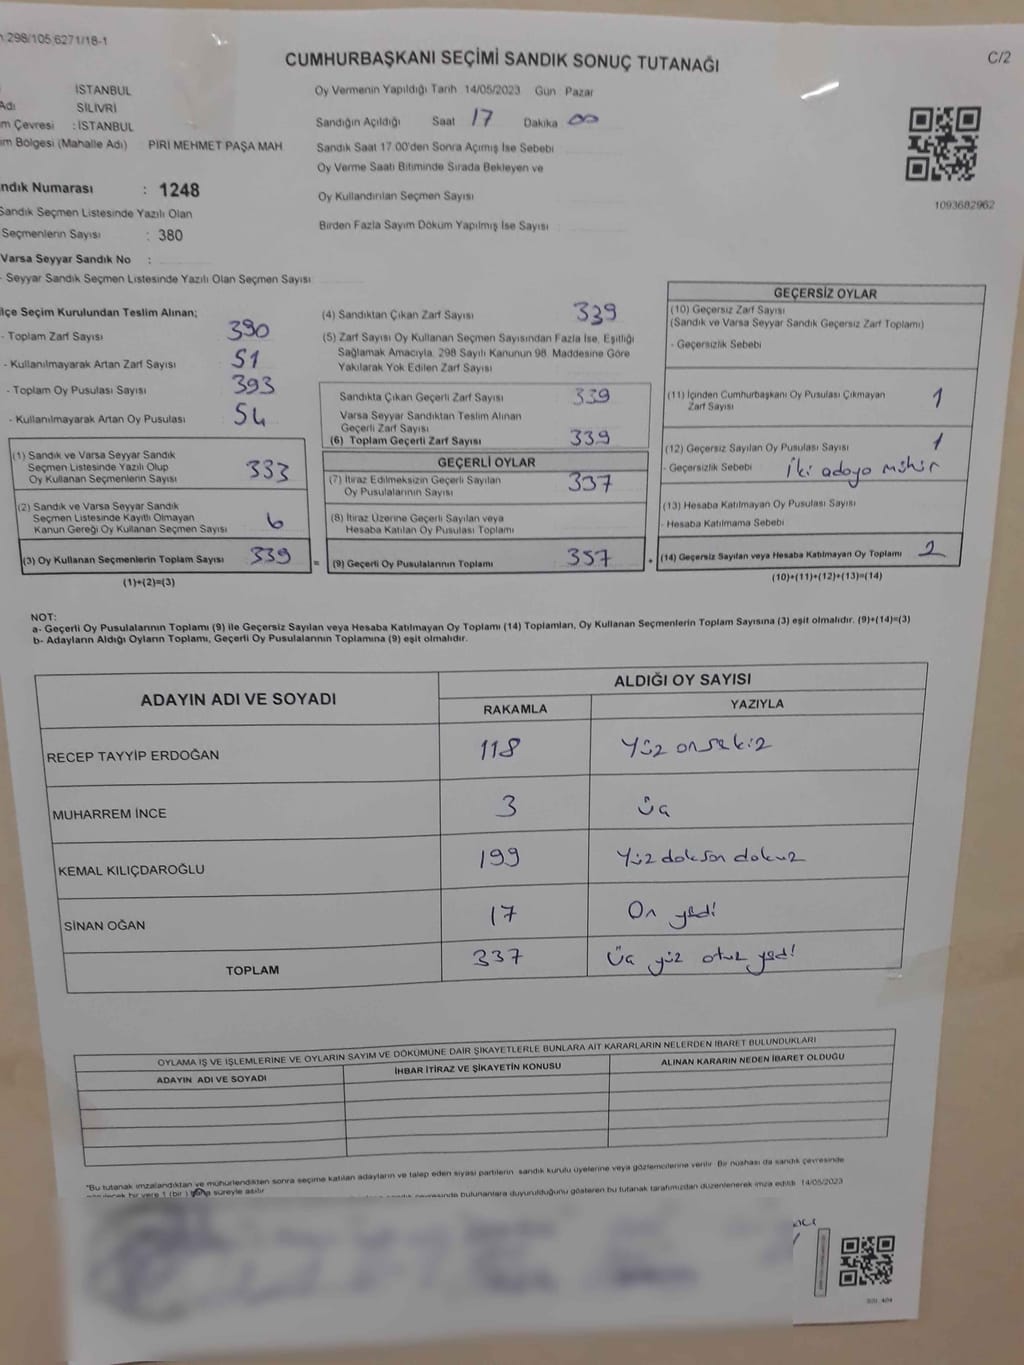 298/105,6271/18-1
C/2
CUMHURBAŞKANI SEÇİMİ SANDIK SONUÇ TUTANAĞI
İSTANBUL
SİLİVRİ
Çevresi : İSTANBUL
Bölgesi (Mahalle Adı) PİRİ MEHMET PAŞA MAH
Numarası : 1248
Sandık Seçmen Listesinde Yazılı Olan
Seçmenlerin Sayısı : 380
Varsa Seyyar Sandık No :
- Seyyar Sandık Seçmen Listesinde Yazılı Olan Seçmen Sayısı
Oy Vermenin Yapıldığı Tarih 14/05/2023 Gün Pazar
Sandığın Açıldığı Saat 17 Dakika 00
Sandık Saat 17.00'den Sonra Açımış İse Sebebi
Oy Verme Saati Bitiminde Sırada Bekleyen ve
Oy Kullandırılan Seçmen Sayısı
Birden Fazla Sayım Döküm Yapılmış İse Sayısı
1093682962
İlçe Seçim Kurulundan Teslim Alınan;
- Toplam Zarf Sayısı 390
- Kullanılmayarak Artan Zarf Sayısı 51
- Toplam Oy Pusulası Sayısı 393
- Kullanılmayarak Artan Oy Pusulası 54
(1) Sandık ve Varsa Seyyar Sandık
Seçmen Listesinde Yazılı Olup
Oy Kullanan Seçmenlerin Sayısı 333
(2) Sandık ve Varsa Seyyar Sandık
Seçmen Listesinde Kayıtlı Olmayan
Kanun Gereği Oy Kullanan Seçmen Sayısı 6
(3) Oy Kullanan Seçmenlerin Toplam Sayısı 339
(1)+(2)=(3)
(4) Sandıktan Çıkan Zarf Sayısı 339
(5) Zarf Sayısı Oy Kullanan Seçmen Sayısından Fazla İse, Eşitliği
Sağlamak Amacıyla, 298 Sayılı Kanunun 98. Maddesine Göre
Yakılarak Yok Edilen Zarf Sayısı
Sandıkta Çıkan Geçerli Zarf Sayısı 339
Varsa Seyyar Sandıktan Teslim Alınan
Geçerli Zarf Sayısı
(6) Toplam Geçerli Zarf Sayısı 339
GEÇERLİ OYLAR
(7) İtiraz Edilmeksizin Geçerli Sayılan
Oy Pusulalarının Sayısı 337
(8) İtiraz Üzerine Geçerli Sayılan veya
Hesaba Katılan Oy Pusulası Toplamı
= (9) Geçerli Oy Pusulalarının Toplamı 337
GEÇERSİZ OYLAR
(10) Geçersiz Zarf Sayısı
(Sandık ve Varsa Seyyar Sandık Geçersiz Zarf Toplamı)
- Geçersizlik Sebebi
(11) İçinden Cumhurbaşkanı Oy Pusulası Çıkmayan
Zarf Sayısı 1
(12) Geçersiz Sayılan Oy Pusulası Sayısı 1
- Geçersizlik Sebebi İki adaya mühür
(13) Hesaba Katılmayan Oy Pusulası Sayısı
- Hesaba Katılmama Sebebi
+ (14) Geçersiz Sayılan veya Hesaba Katılmayan Oy Toplamı 2
(10)+(11)+(12)+(13)=(14)
NOT:
a- Geçerli Oy Pusulalarının Toplamı (9) ile Geçersiz Sayılan veya Hesaba Katılmayan Oy Toplamı (14) Toplamları, Oy Kullanan Seçmenlerin Toplam Sayısına (3) eşit olmalıdır. (9)+(14)=(3)
b- Adayların Aldığı Oyların Toplamı, Geçerli Oy Pusulalarının Toplamına (9) eşit olmalıdır.
ADAYIN ADI VE SOYADI
ALDIĞI OY SAYISI
RAKAMLA YAZIYLA
RECEP TAYYİP ERDOĞAN 118 Yüz onsekiz
MUHARREM İNCE 3 üç
KEMAL KILIÇDAROĞLU 199 Yüz doksan dokuz
SİNAN OĞAN 17 On yedi
TOPLAM 337 Üç yüz otuz yedi
OYLAMA İŞ VE İŞLEMLERİNE VE OYLARIN SAYIM VE DÖKÜMÜNE DAİR ŞİKAYETLERLE BUNLARA AİT KARARLARIN NELERDEN İBARET BULUNDUKLARI
ADAYIN ADI VE SOYADI İHBAR İTİRAZ VE ŞİKAYETİN KONUSU ALINAN KARARIN NEDEN İBARET OLDUĞU
"Bu tutanak imzalandıktan ve mühürlendikten sonra seçime katılan adayların ve talep eden siyasi partilerin sandık kurulu üyelerine veya gözlemcilerine verilir. Bir nüshası da sandık çevresinde
bir yere 1 (bir) süreyle asılır
bulunanlara duyurulduğunu gösteren bu tutanak tarafımızdan düzenlenerek imza edildi. 14/05/2023